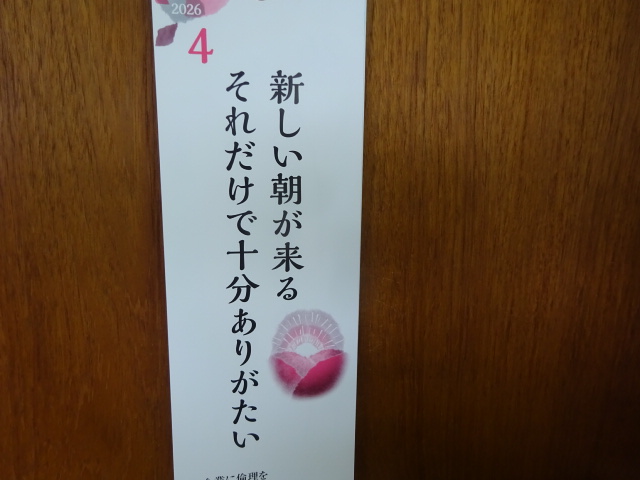 2026
4
新しい朝が来る
それだけで十分ありがたい
に倫理を